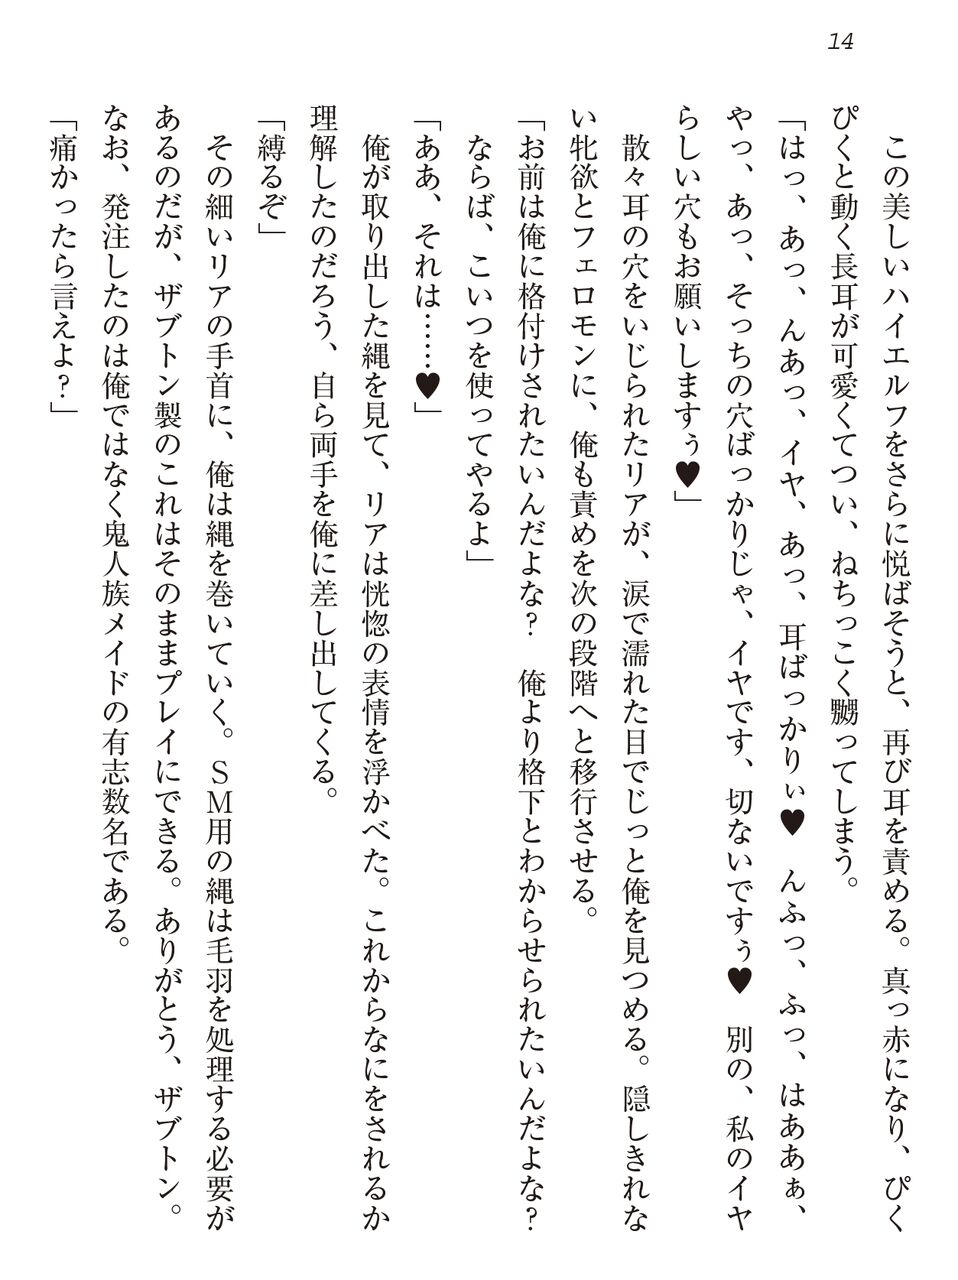 14
この美しいハイエルフをさらに悦ばそうと、再び耳を責める。真っ赤になり、ぴく
ぴくと動く長耳が可愛くてつい、ねちっこく嬲ってしまう。
「はっ、あっ、んあっ、イヤ、あっ、耳ばっかりぃ♥　んふっ、ふっ、はああぁ、
やっ、あっ、そっちの穴ばっかりじゃ、イヤです、切ないですぅ♥　別の、私のイヤ
らしい穴もお願いしますぅ♥」
散々耳の穴をいじられたリアが、涙で濡れた目でじっと俺を見つめる。隠しきれな
い牝欲とフェロモンに、俺も責めを次の段階へと移行させる。
「お前は俺に格付けされたいんだよな？　俺より格下とわからせられたいんだよな？
ならば、こいつを使ってやるよ」
「ああ、それは……♥」
俺が取り出した縄を見て、リアは恍惚の表情を浮かべた。これからなにをされるか
理解したのだろう、自ら両手を俺に差し出してくる。
「縛るぞ」
その細いリアの手首に、俺は縄を巻いていく。ＳＭ用の縄は毛羽を処理する必要が
あるのだが、ザブトン製のこれはそのままプレイにできる。ありがとう、ザブトン。
なお、発注したのは俺ではなく鬼人族メイドの有志数名である。
「痛かったら言えよ？」